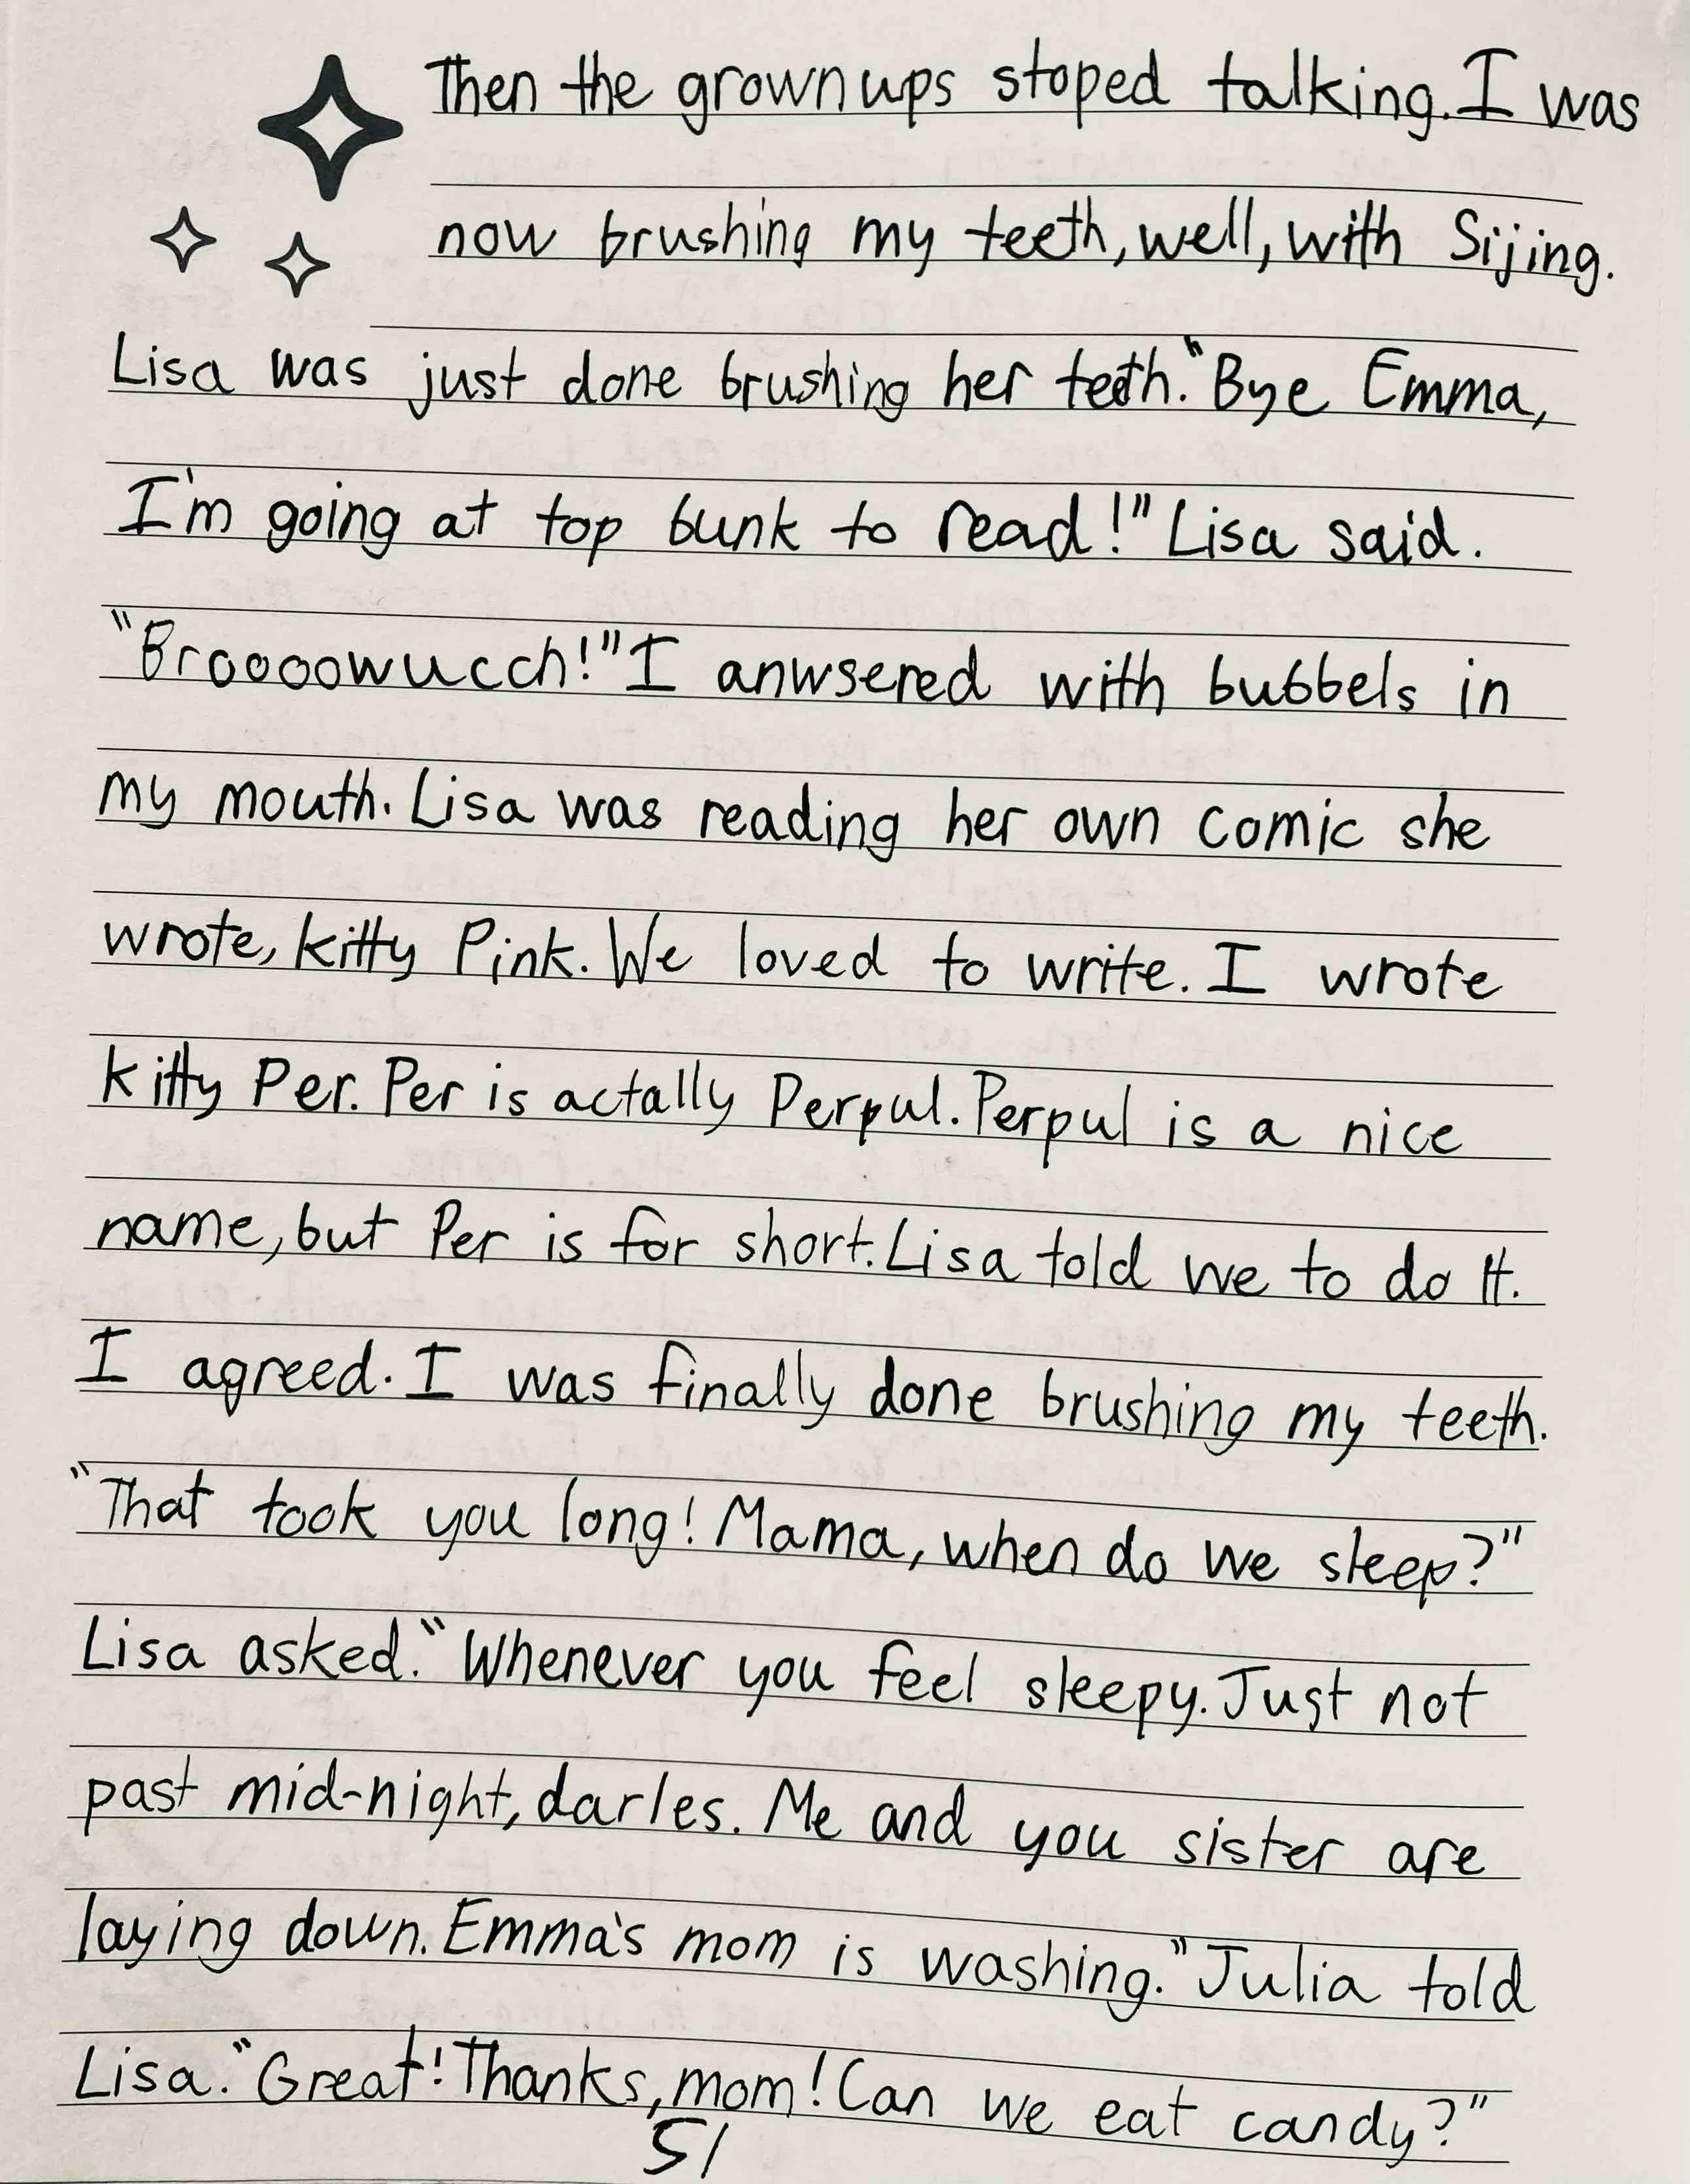 Then the grownups stoped talking. I was
now brushing my teeth, well, with Sijing.
Lisa was just done brushing her teeth. "Bye Emma,
I'm going at top bunk to read!" Lisa said.
"Broooowucch!" I anwsered with bubbels in
my mouth. Lisa was reading her own comic she
wrote, kitty Pink. We loved to write. I wrote
kitty Per. Per is actally Perpul. Perpul is a nice
name, but Per is for short. Lisa told we to do it.
I agreed. I was finally done brushing my teeth.
"That took you long! Mama, when do we sleep?"
Lisa asked. "Whenever you feel sleepy. Just not
past mid-night, darles. Me and you sister are
laying down. Emma's mom is washing." Julia told
Lisa. "Great! Thanks, mom! Can we eat candy?"
51